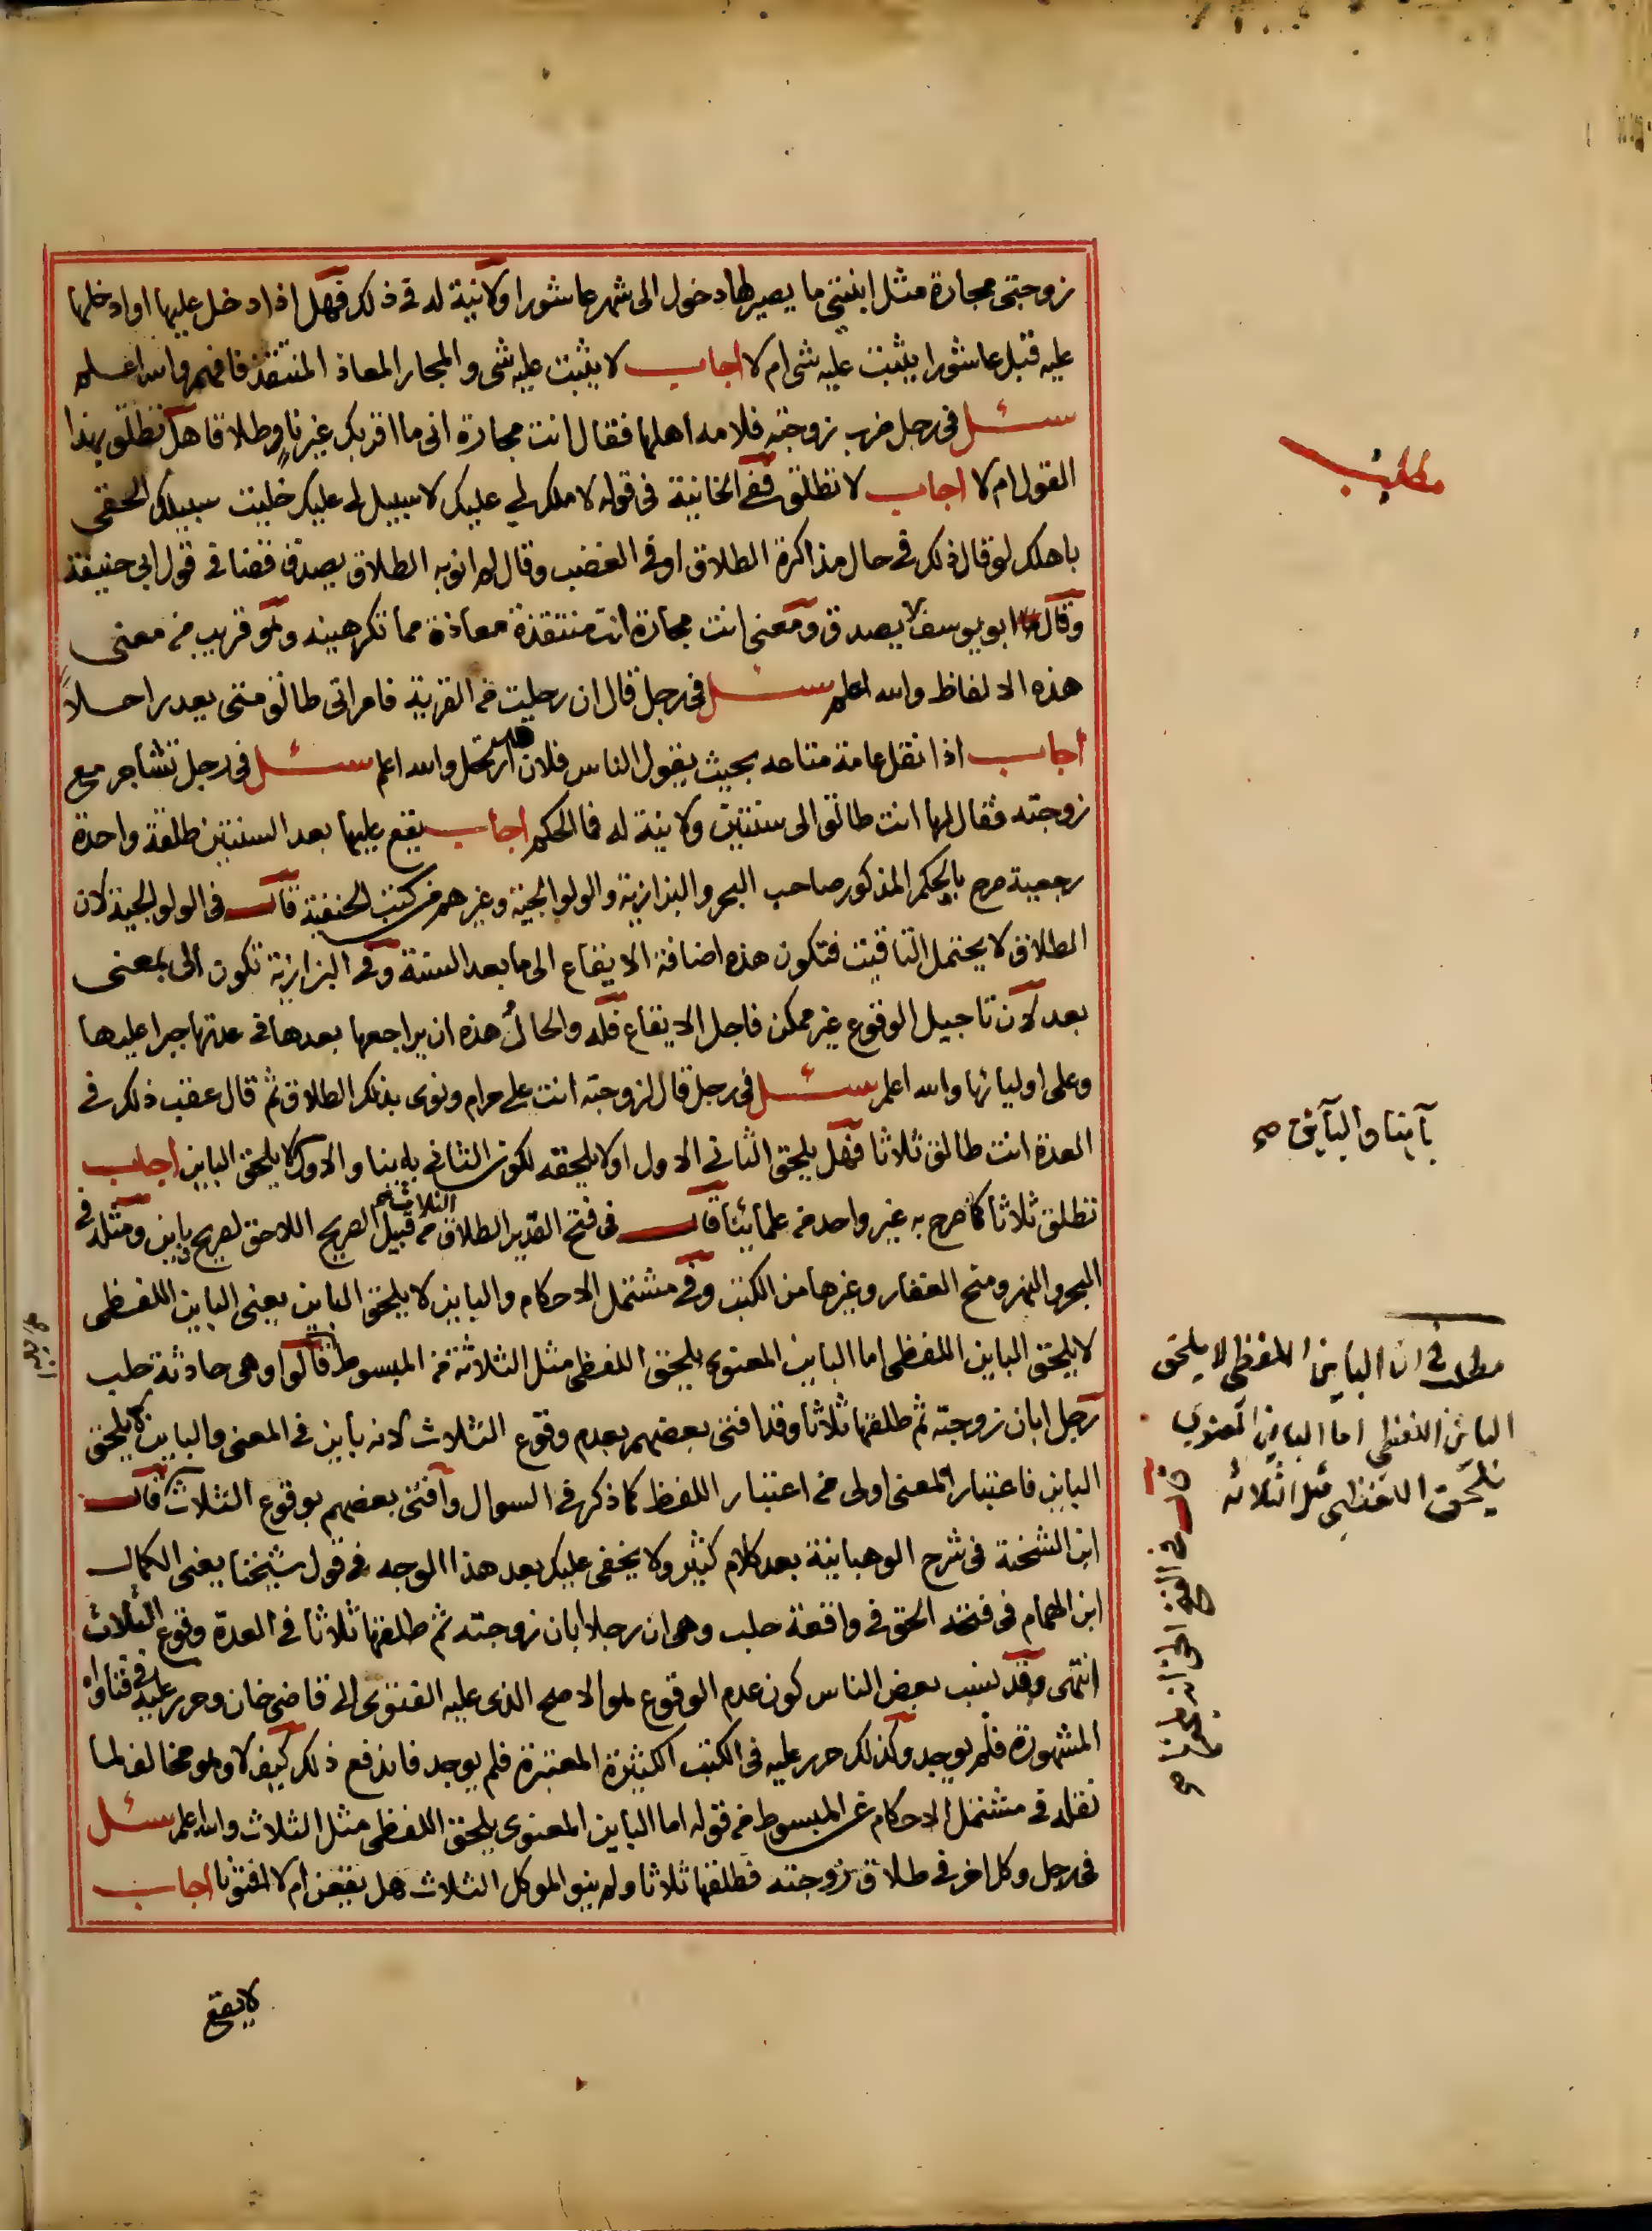 زوجتى مجارة مثل ابنتى ما يصيرلها دخول الى شهر عاشورا ولانية له فى ذلك فهل اذا دخل عليها او ادخلها
عليه قبل عاشورا يثبت عليه شى ام لا اجاب لا يثبت عليه شى والمجار المعاذ المنتقذ فافهم والله اعلم
سئل فى رجل ضرب زوجته فلامه اهلها فقال انت مجارة انى ما اقربك غير ناو طلاقا هل تطلق بهذا
القول ام لا اجاب لا تطلق ففى الخانية فى قوله لا ملك لى عليك لا سبيل لى عليك خليت سبيلك الحقى
باهلك لو قال ذلك فى حال مذاكرة الطلاق او فى الغضب وقال لم انو به الطلاق يصدق قضا فى قول ابى حنيفة
وقال ابو يوسف لا يصدق ومعنى انت مجارة انت منتقذة معاذة مما تكرهينه وهو قريب من معنى
هذه الالفاظ والله اعلم سئل فى رجل قال ان رحليت من القرية فامراتى طالق متى يعد راحلاً
اجاب اذا نقل عامة متاعه بحيث يقول الناس فلان ارتحل والله اعلم سئل فى رجل تشاجر مع
زوجته فقال لها انت طالق الى سنتين ولا نية له فما الحكم اجاب يقع عليها بعد السنتين طلقة واحدة
رجعية صرح بالحكم المذكور صاحب البحر والبزازية والولوالجية وغيرهم من كتب الحنفية قال فى الولوالجية لان
الطلاق لا يحتمل التاقيت فتكون هذه اضافة الايقاع الى ما بعد السنة وفى البزازية تكون الى بمعنى
بعد لان تاجيل الوقوع غير ممكن فاجل الايقاع فله والحال هذه ان يراجعها بعدها فى عدتها جبرا عليها
وعلى اوليائها والله اعلم سئل فى رجل قال لزوجته انت على حرام ونوى بذلك الطلاق ثم قال عقب ذلك فى
العدة انت طالق ثلاثا فهل يلحق الثانى الاول او لا يلحقه لكون الثانى باينا والاول لا يلحق الباين اجاب
تطلق ثلاثا كما صرح به غير واحد من علمائنا قال فى فتح القدير الطلاق الثلاث من قبيل الصريح اللاحق لصريح وباين ومثله فى
البحر والنهر ومنح الغفار وغيرها من الكتب وفى مشتمل الاحكام والباين لا يلحق الباين يعنى الباين اللفظى
لا يلحق الباين اللفظى اما الباين المعنوى يلحق اللفظى مثل الثلاثة من المبسوط قالوا وهى حادثة حلب
رجل ابان زوجته ثم طلقها ثلاثا وقد افتى بعضهم بعدم وقوع الثلاث لانه باين فى المعنى والباين لا يلحق
الباين فاعتبار المعنى اولى من اعتبار اللفظ كما ذكر فى السوال وافتى بعضهم بوقوع الثلاث قال
ابن الشحنة فى شرح الوهبانية بعد كلام كثير ولا يخفى عليك بعد هذا الوجه فى قول شيخنا يعنى الكمال
ابن الهمام فى فتحه الحق فى واقعة حلب وهى ان رجلا ابان زوجته ثم طلقها ثلاثا فى العدة وقوع الثلاث
انتهى وقد نسب بعض الناس كون عدم الوقوع هو الاصح الذى عليه الفتوى الى قاضى خان وحرر عليه فى فتاواه
المشهورة فلم يوجد وكذلك حرر عليه فى الكتب الكثيرة المعتبرة فلم يوجد فاندفع ذلك كيف لا وهو مخالف لما
نقله فى مشتمل الاحكام عن المبسوط من قوله اما الباين المعنوى يلحق اللفظى مثل الثلاث والله اعلم سئل
فى رجل وكل اخر فى طلاق زوجته فطلقها ثلاثا ولم ينو الموكل الثلاث هل يقعن ام لا افتونا اجاب
لا يقع
مطلب
بآينا والبآئن صح
مطلب فى ان الباين اللفظى لا يلحق
البائن اللفظى اما الباين المعنوى
يلحق اللفظى مثل الثلاثه
قال فى الفتح الحق انه يلحقها صح